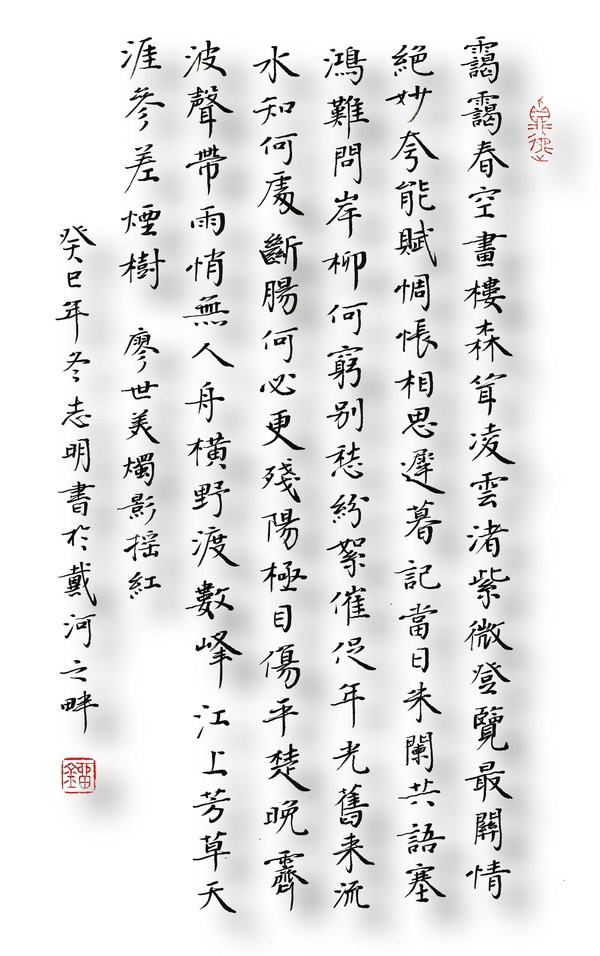 靄靄春空畫樓森聳凌雲渚紫微登覽最關情
絕妙夸能賦惆悵相思遲暮記當日朱闌共語塞
鴻難問岸柳何窮別愁紛絮催促年光舊来流
水知何處斷腸何必更殘陽極目傷平楚晚霽
波聲帶雨悄無人舟橫野渡數峰江上芳草天
涯參差煙樹 廖世美燭影搖紅
癸巳年冬志明書於戴河之畔